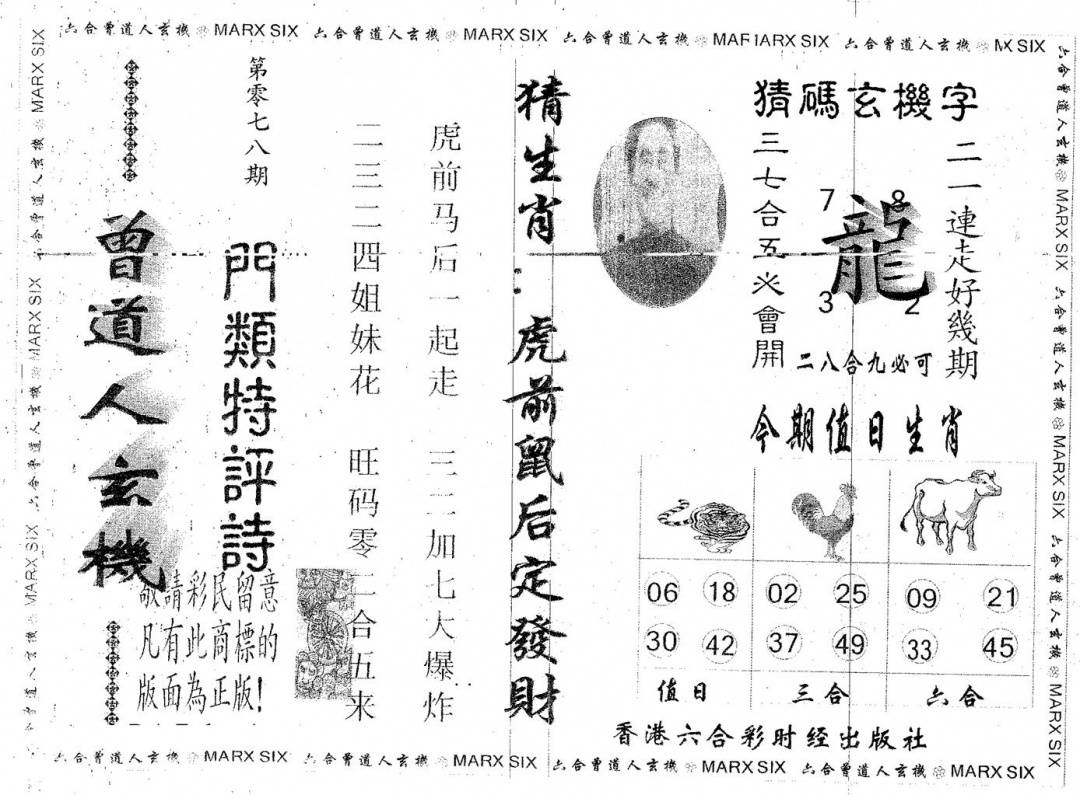 六合曾道人玄機 MARX SIX 六合曾道人玄機 MARX SIX 六合曾道人玄機 MARX SIX 六合曾道人玄機 MARX SIX
猜碼玄機字
二一連走好幾期
龍
7
8
3
2
三七合五必會開
二八合九必可
今期值日生肖
06 18 02 25 09 21
30 42 37 49 33 45
值日 三合 六合
香港六合彩时经出版社
猜生肖：虎前鼠后定發財
虎前马后一起走 三二加七大爆炸
二三二四姐妹花 旺码零二合五来
第零七八期
門類特評詩
曾道人玄機
敬請彩民留意
凡有此商標的
版面為正版!
六合曾道人玄機 MARX SIX 六合曾道人玄機 MARX SIX 六合曾道人玄機 MARX SIX 六合曾道人玄機 MARX SIX
六合曾道人玄機 MARX SIX 六合曾道人玄機 MARX SIX 六合曾道人玄機 MARX SIX
六合曾道人玄機 MARX SIX 六合曾道人玄機 MARX SIX 六合曾道人玄機 MARX SIX